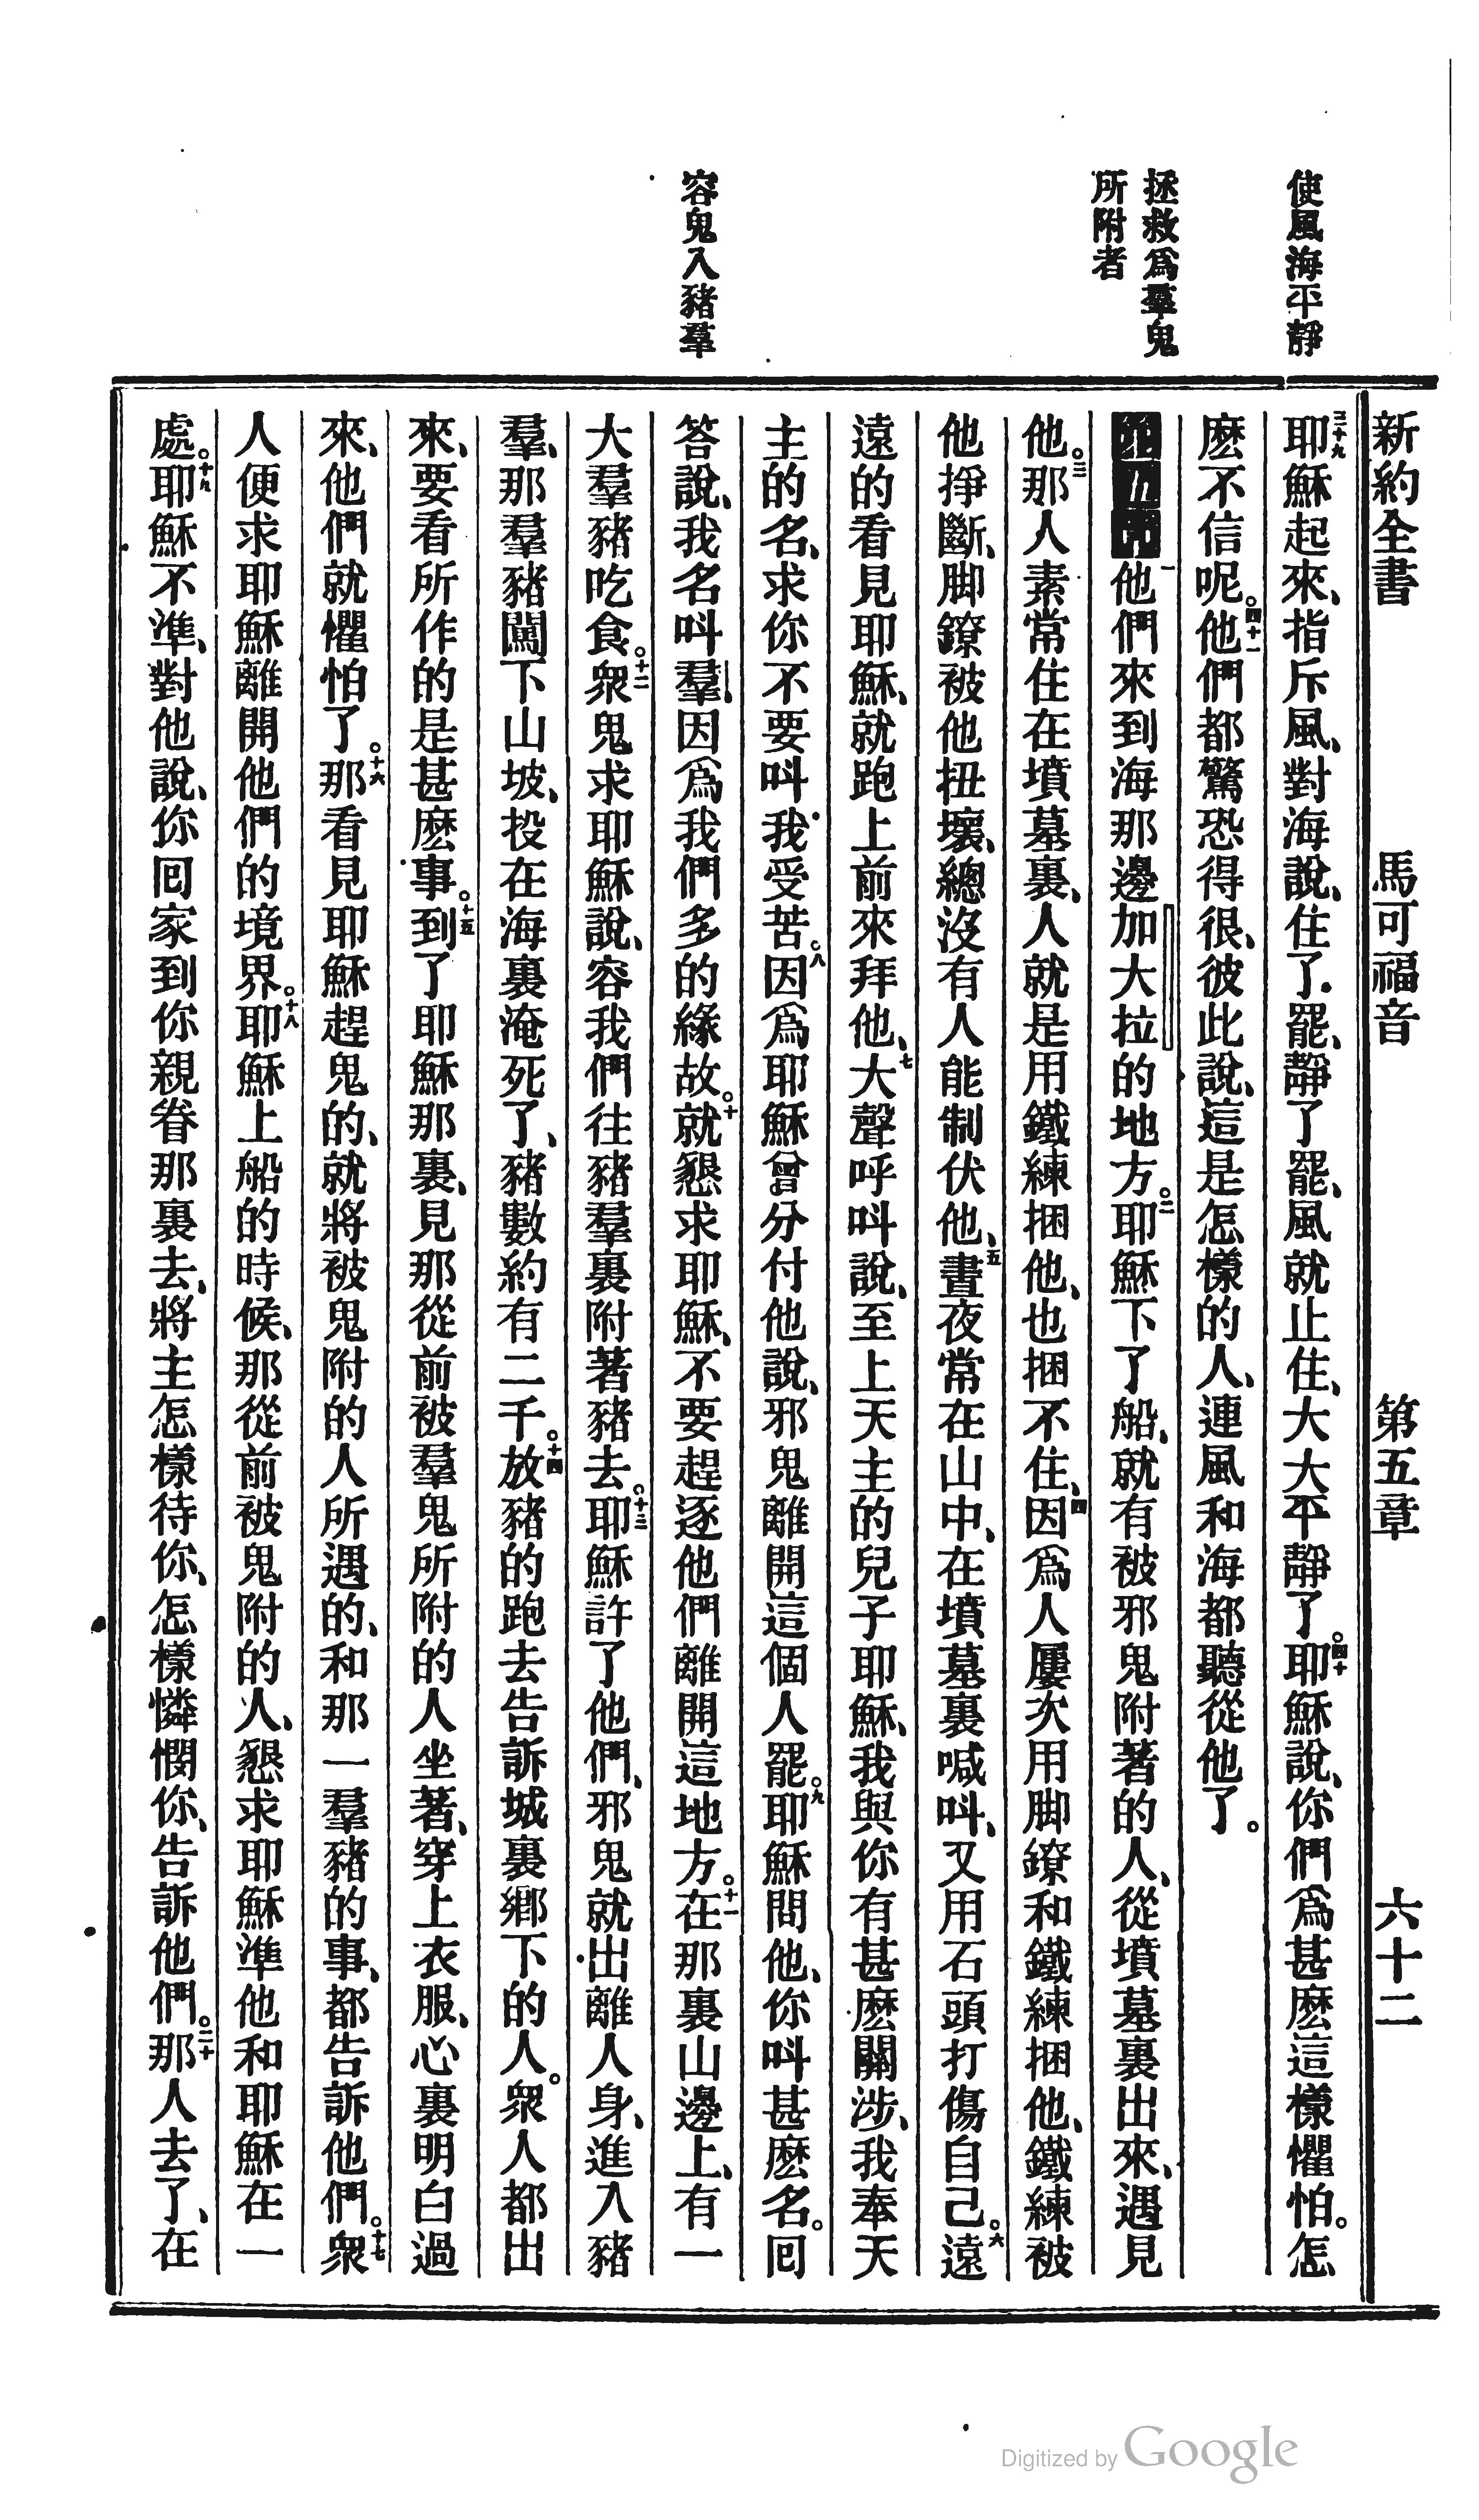 新約全書　馬可福音　第五章　六十二
使風海平靜
拯救爲羣鬼
所附者
容鬼入豬羣
三十九耶穌起來、指斥風、對海說、住了罷、靜了罷、風就止住、大大平靜了。四十耶穌說、你們爲甚麽這樣懼怕。怎
麽不信呢。四十一他們都驚恐得很、彼此說、這是怎樣的人、連風和海都聽從他了。
第五章一他們來到海那邊加大拉的地方。二耶穌下了船、就有被邪鬼附著的人、從墳墓裏出來、遇見
他。三那人素常住在墳墓裏、人就是用鐵練捆他、也捆不住、四因爲人屢次用脚鐐和鐵練捆他、鐵練被
他掙斷、脚鐐被他扭壞、總沒有人能制伏他、五晝夜常在山中、在墳墓裏喊呌、又用石頭打傷自己。六遠
遠的看見耶穌、就跑上前來拜他、七大聲呼呌說、至上天主的兒子耶穌、我與你有甚麽關涉、我奉天
主的名、求你不要呌我受苦。八因爲耶穌曾分付他說、邪鬼離開這個人罷。九耶穌問他、你呌甚麽名。囘
答說、我名呌羣、因爲我們多的緣故。十就懇求耶穌、不要趕逐他們離開這地方。十一在那裏山邊上、有一
大羣豬吃食。十二衆鬼求耶穌說、容我們往豬羣裏附著豬去。十三耶穌許了他們、邪鬼就出離人身、進入豬
羣、那羣豬闖下山坡、投在海裏淹死了、豬數約有二千。十四放豬的跑去告訴城裏鄉下的人。衆人都出
來、要看所作的是甚麽事。十五到了耶穌那裏、見那從前被羣鬼所附的人坐著、穿上衣服、心裏明白過
來、他們就懼怕了。十六那看見耶穌趕鬼的、就將被鬼附的人所遇的、和那一羣豬的事、都告訴他們。十七衆
人便求耶穌離開他們的境界。十八耶穌上船的時候、那從前被鬼附的人、懇求耶穌準他和耶穌在一
處。十九耶穌不準、對他說、你囘家到你親眷那裏去、將主怎樣待你、怎樣憐憫你、告訴他們。二十那人去了、在
Digitized by Google